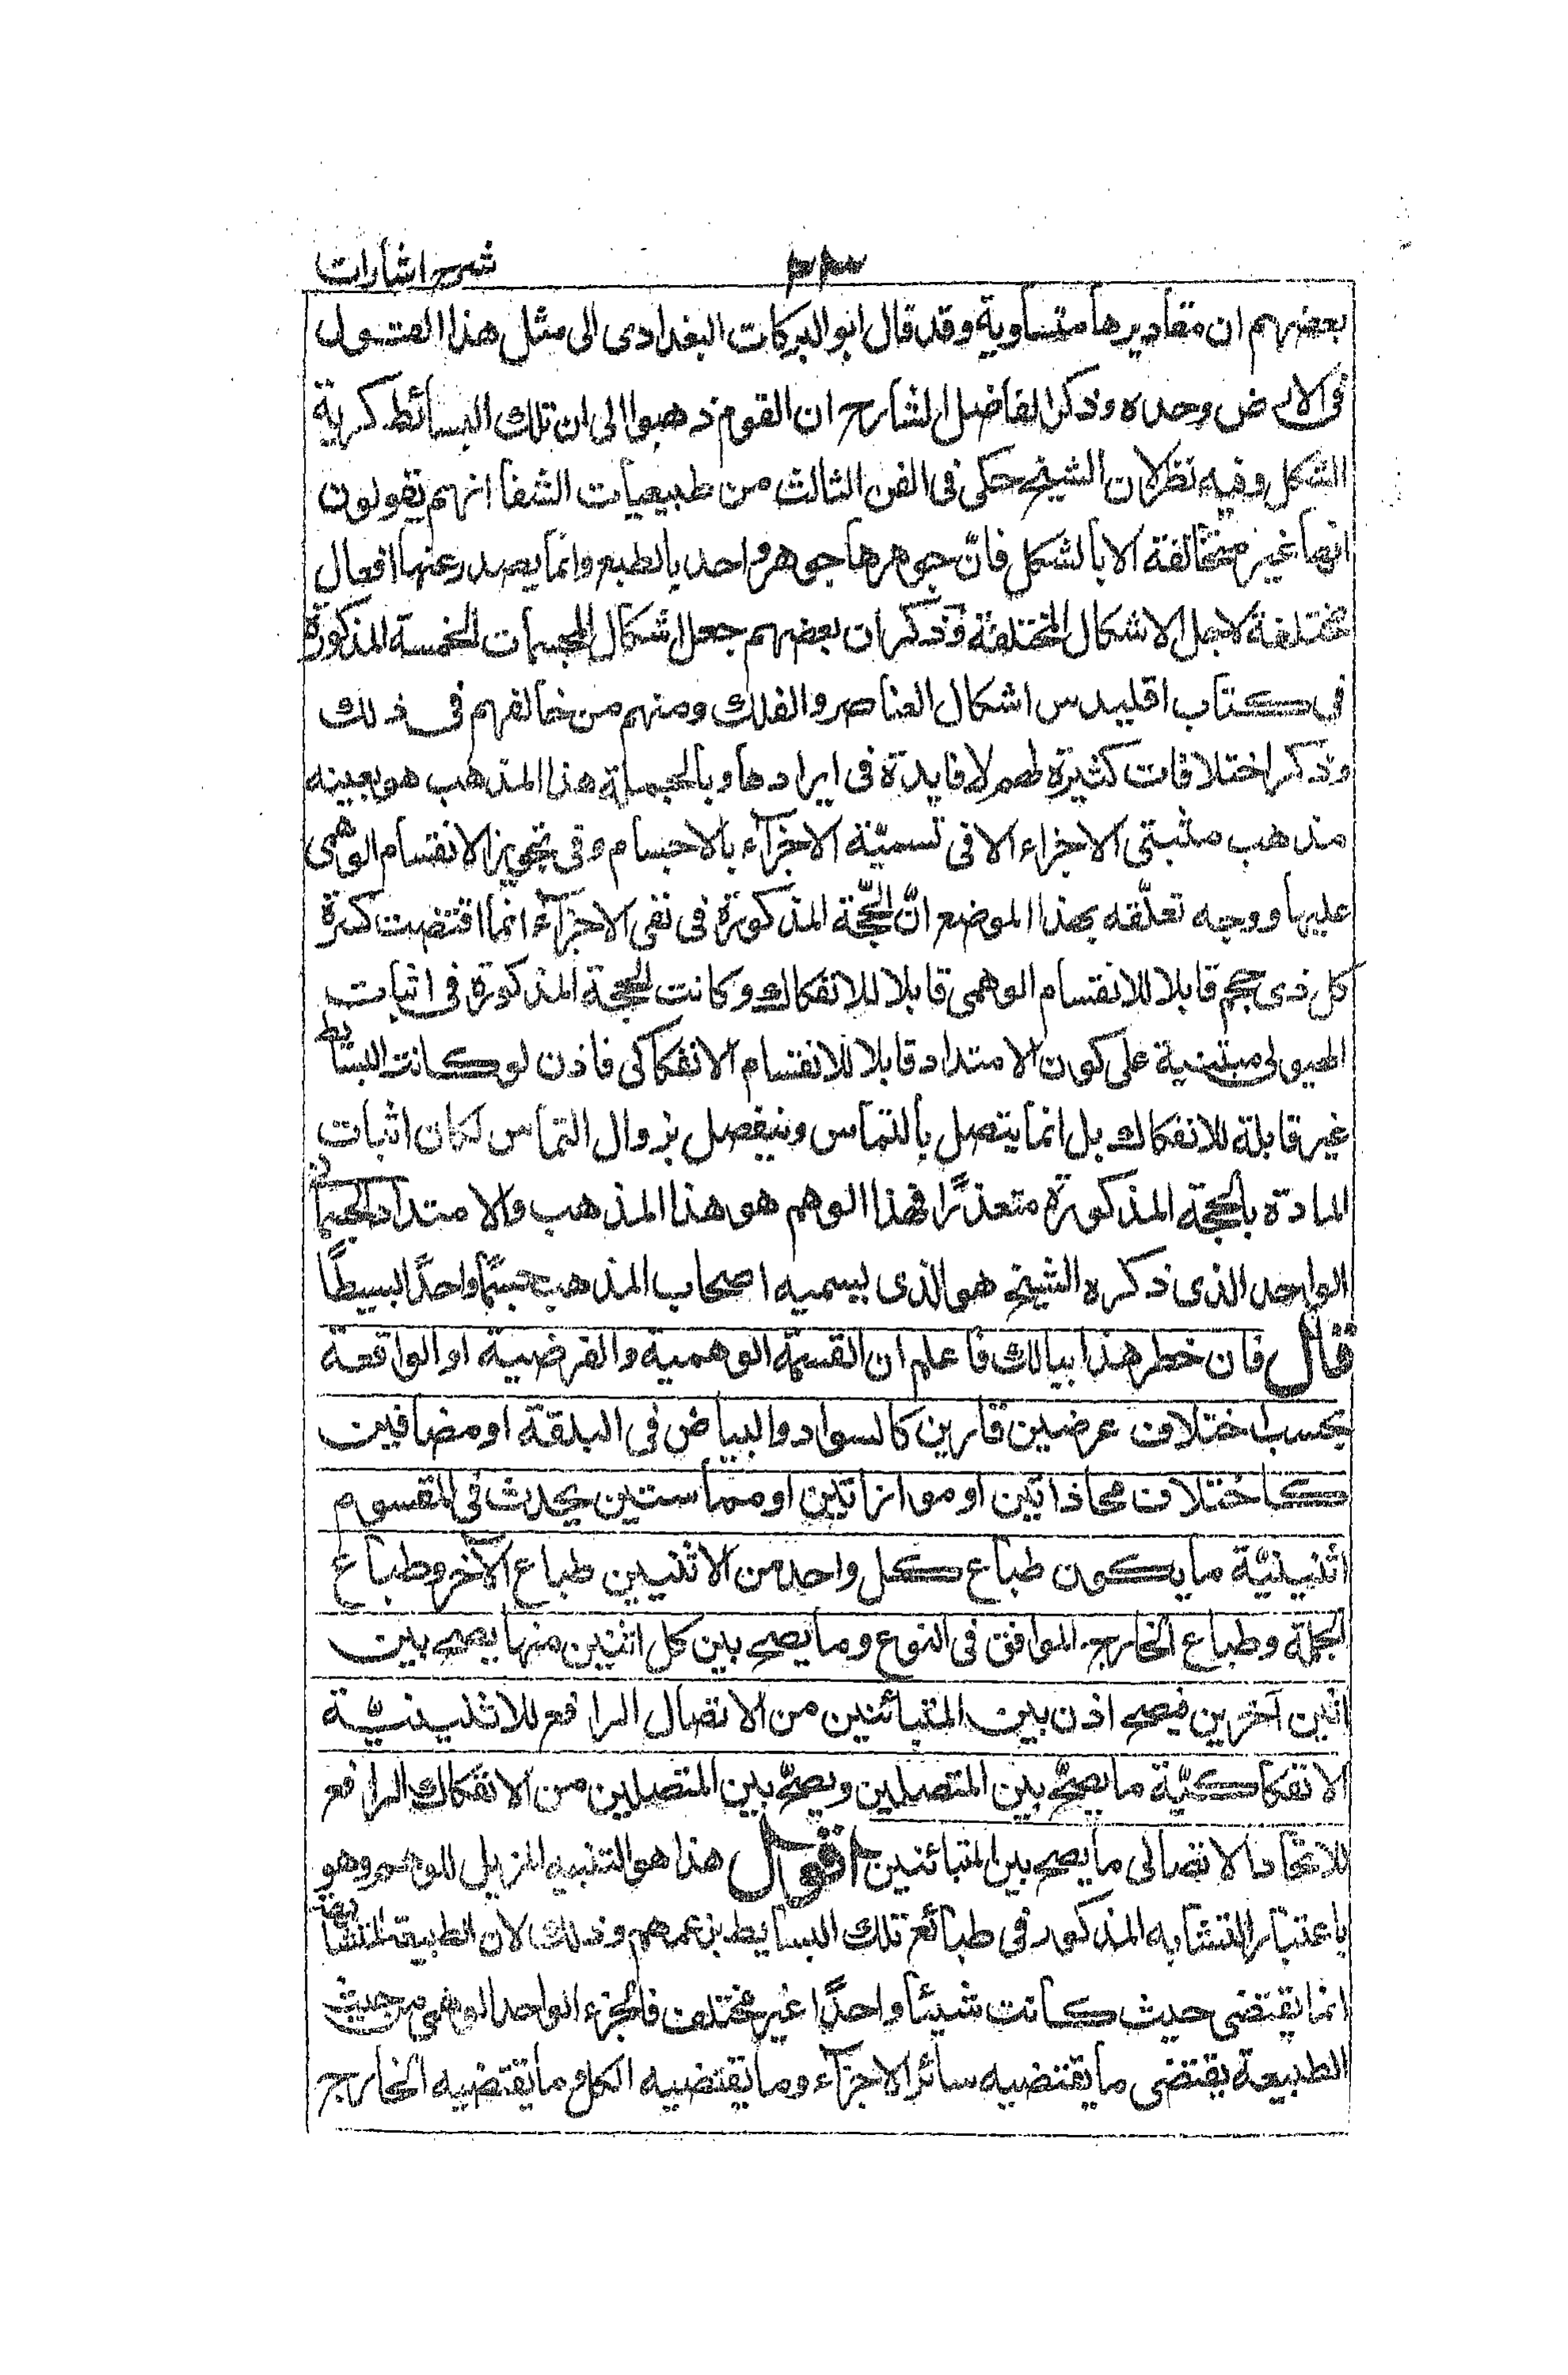 شرح اشارات
بعضهم ان مقاديرها متساوية وقد قال ابو البركات البغدادى الى مثل هذا القول
فى الارض وحده وذكر الفاضل الشارح ان القوم ذهبوا الى ان تلك البسائط كرية
الشكل وفيه نظر لان الشيخ حكى فى الفن الثالث من طبيعيات الشفا انهم يقولون
انها غير متخالفة الا بالشكل فانّ جوهرها جوهر واحد بالطبع وانما يصدر عنها افعال
مختلفة لاجل الاشكال المختلفة وذكر ان بعضهم جعل اشكال المجسمات الخمسة المذكورة
فى كتاب اقليدس اشكال العناصر والفلك ومنهم من خالفهم فى ذلك
وذكر اختلافات كثيرة لهم لا فايدة فى ايرادها وبالجملة هذا المذهب هو بعينه
مذهب مثبتى الاجزاء الا فى تسميّة الاجزآء بالاجسام وفى تجويز الانقسام الوهمى
عليها ووجه تعلّقه بهذا الموضع انّ الحجّة المذكورة فى نفى الاجزآء انما اقتضت كرة
كل ذى حجم قابلا للانقسام الوهمى قابلا للانفكاك وكانت الحجة المذكورة فى اثبات
الهيولى مبتنية على كون الامتداد قابلا للانقسام الانفكاكى فاذن لو كانت البسائط
غير قابلة للانفكاك بل انما يتصل بالتماس وينفصل بزوال التماس لكان اثبات
المادة بالحجة المذكورة متعذرًا فهذا الوهم هو هذا المذهب والامتداد الجسمانى
الواحد الذى ذكره الشيخ هو الذى يسميه اصحاب المذهب جسمًا واحدًا بسيطًا
قال فان خطر هذا ببالك فاعلم ان القسمة الوهمية والفرضية او الواقعة
بحسب اختلاف عرضين قارين كالسواد والبياض فى البلقة او مضافين
كاختلاف محاذاتين او موازاتين او مماستين يحدث فى المقسوم
اثنينيّة ما يكون طباع كل واحد من الاثنين طباع الآخر وطباع
الجملة وطباع الخارج الموافق فى النوع وما يصح بين كل اثنين منها يصح بين
اثنين آخرين فيصح اذن بين المتبائنين من الاتصال الرافع للاثنينيّة
الانفكاكيّة ما يصحّ بين المتصلين ويصحّ بين المتصلين من الانفكاك الرافع
للاتحاد الاتصالى ما يصح بين المتبائنين اقول هذا هو التنبيه المزيل للوهم وهو
باعتبار التشابه المذكور فى طبائع تلك البسايط بزعمهم وذلك لان الطبيعة المتشابهة
انما يقتضى حيث كانت شيئًا واحدًا غير مختلف فالجزء الواحد الوهمى من حيث
الطبيعة يقتضى ما يقتضيه سائر الاجزآء وما يقتضيه الكل وما يقتضيه الخارج